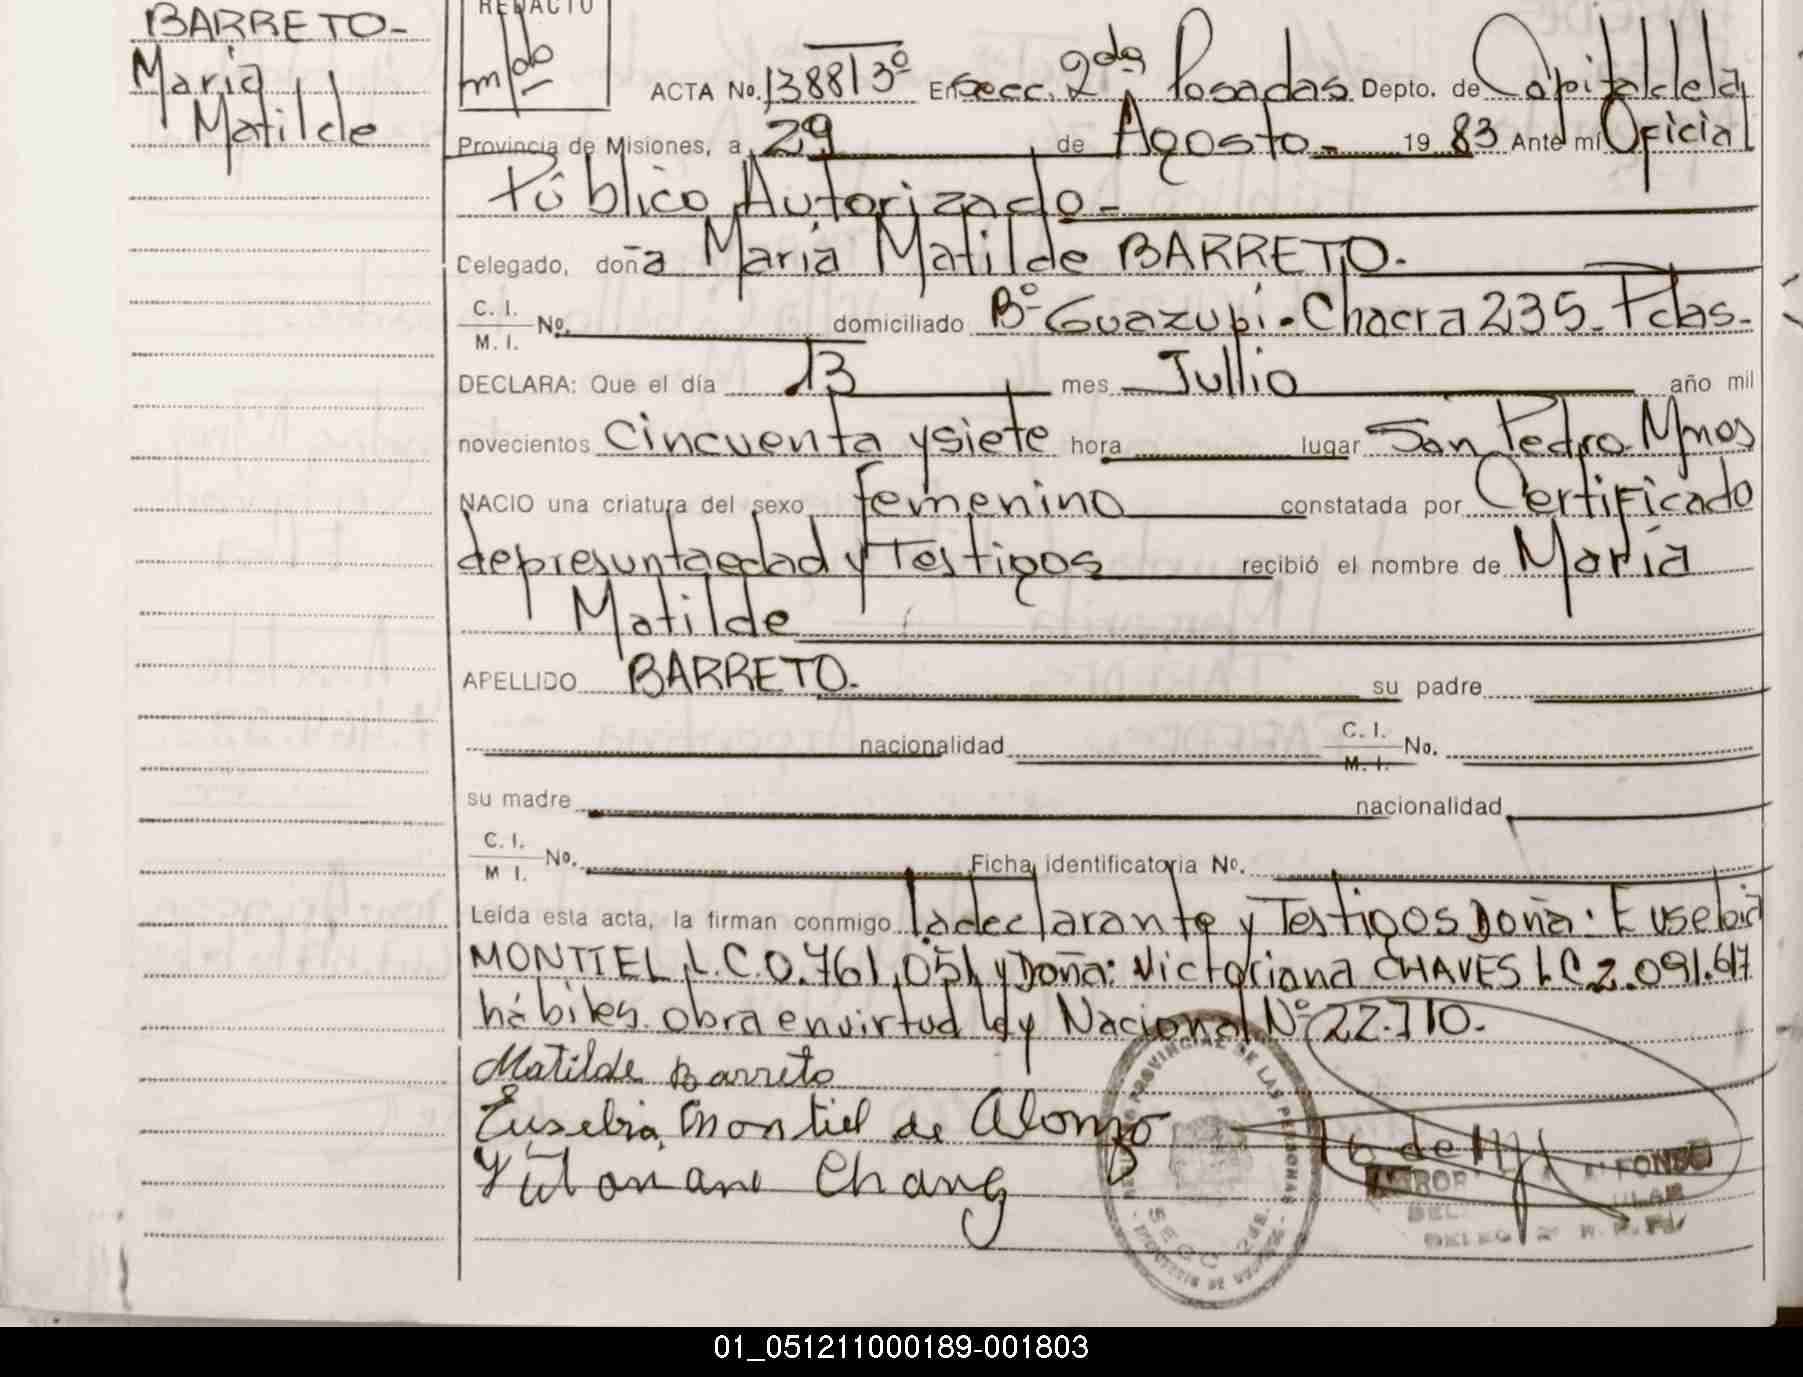 BARRETO-
María
Matilde
REDACTO
ACTA No. 1388 T 3º En Secc. 2da Posadas Depto. de Capital de la
Provincia de Misiones, a 29 de Agosto- 19 83 Ante mí Oficial
Público Autorizado-
Delegado, doña María Matilde BARRETO.
C. I.
M. I. No. domiciliado Bº Guazupi. Chacra 235. Pdas.
DECLARA: Que el día 13 mes Jullio año mil
novecientos Cincuenta y siete hora lugar San Pedro Mnes
NACIO una criatura del sexo femenino constatada por Certificado
de presunta edad y Testigos recibió el nombre de María
Matilde
APELLIDO BARRETO. su padre
nacionalidad C. I. M. I. No.
su madre nacionalidad
C. I.
M I. No. Ficha identificatoria No.
Leída esta acta, la firman conmigo la declarante y Testigos Doña: Eusebia
MONTIEL L.C.0.761.051 y Doña: Victoriana CHAVES L.C 2.091.617
hábiles. obra en virtud ley Nacional Nº 22.710.
Matilde Barreto
Eusebia Montiel de Alonzo
PROVINCIAL DE LAS PERSONAS
SECC 2da.
01_051211000189-001803